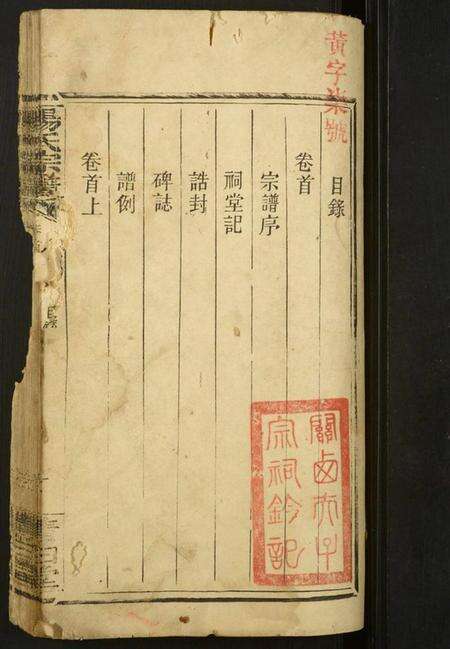 黃字柒號
目錄
卷首
宗譜序
祠堂記
誥封
碑誌
譜例
卷首上
楊氏宗譜
關西夫子
宗祠鈐記